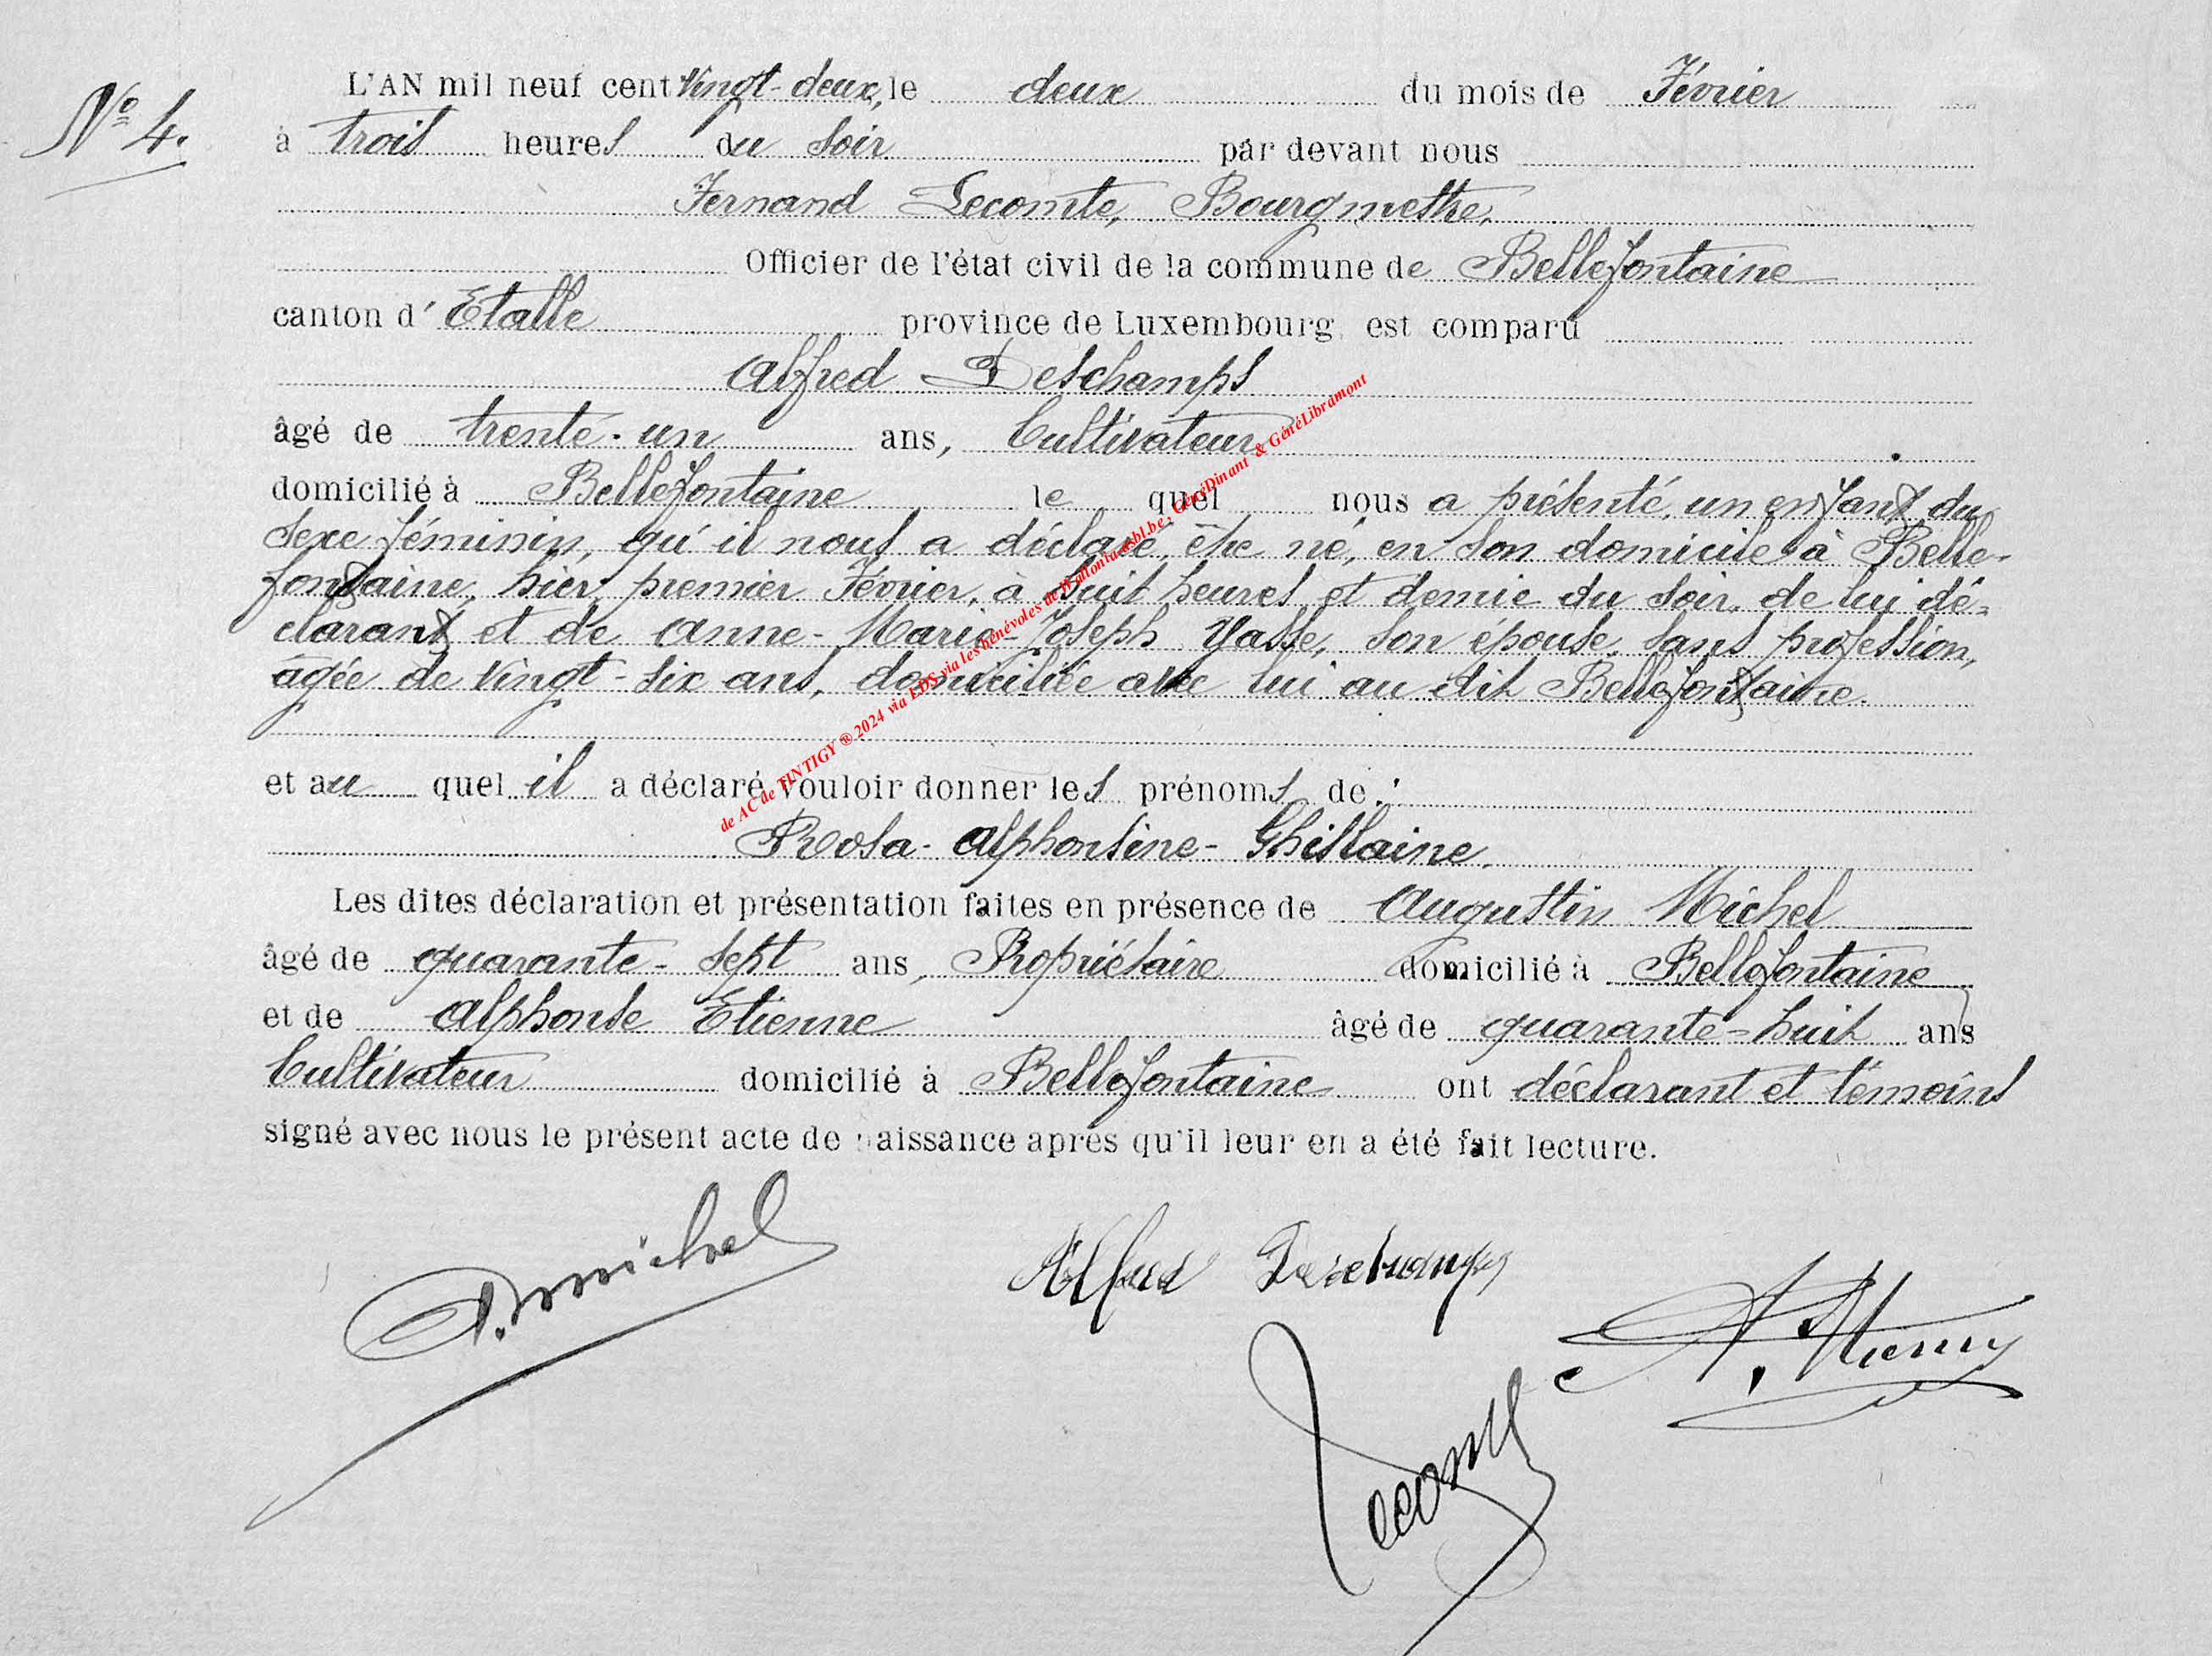 N° 4.
L'AN mil neuf cent Vingt-deux, le deux du mois de Février
à trois heures du soir par devant nous
Fernand Lecomte, Bourgmestre,
Officier de l'état civil de la commune de Bellefontaine
canton d' Etalle province de Luxembourg est comparu
Alfred Deschamps
âgé de trente-un ans, Cultivateur
domicilié à Bellefontaine le quel nous a présenté, un enfant du
sexe féminin, qu'il nous a déclaré, être né, en son domicile à Belle-
fontaine, hier, premier Février, à huit heures et demie du soir, de lui dé=
clarant et de Anne-Marie-Joseph Yasse, son épouse, sans profession,
âgée de vingt-six ans, domiciliée avec lui au dit Bellefontaine.
et au quel il a déclaré vouloir donner les prénoms de :
Rosa-Alphonsine-Ghislaine.
Les dites déclaration et présentation faites en présence de Augustin Michel
âgé de quarante-sept ans, Propriétaire domicilié à Bellefontaine
et de Alphonse Etienne âgé de quarante-huit ans
Cultivateur domicilié à Bellefontaine ont déclarant et témoins
signé avec nous le présent acte de naissance après qu'il leur en a été fait lecture.
A. Michel
Alfred Deschamps
A. Etienne
Lecomte
de AC de TINTIGY ® 2024 via LDS via les bénévoles de GénéDinant & GénéLibramont